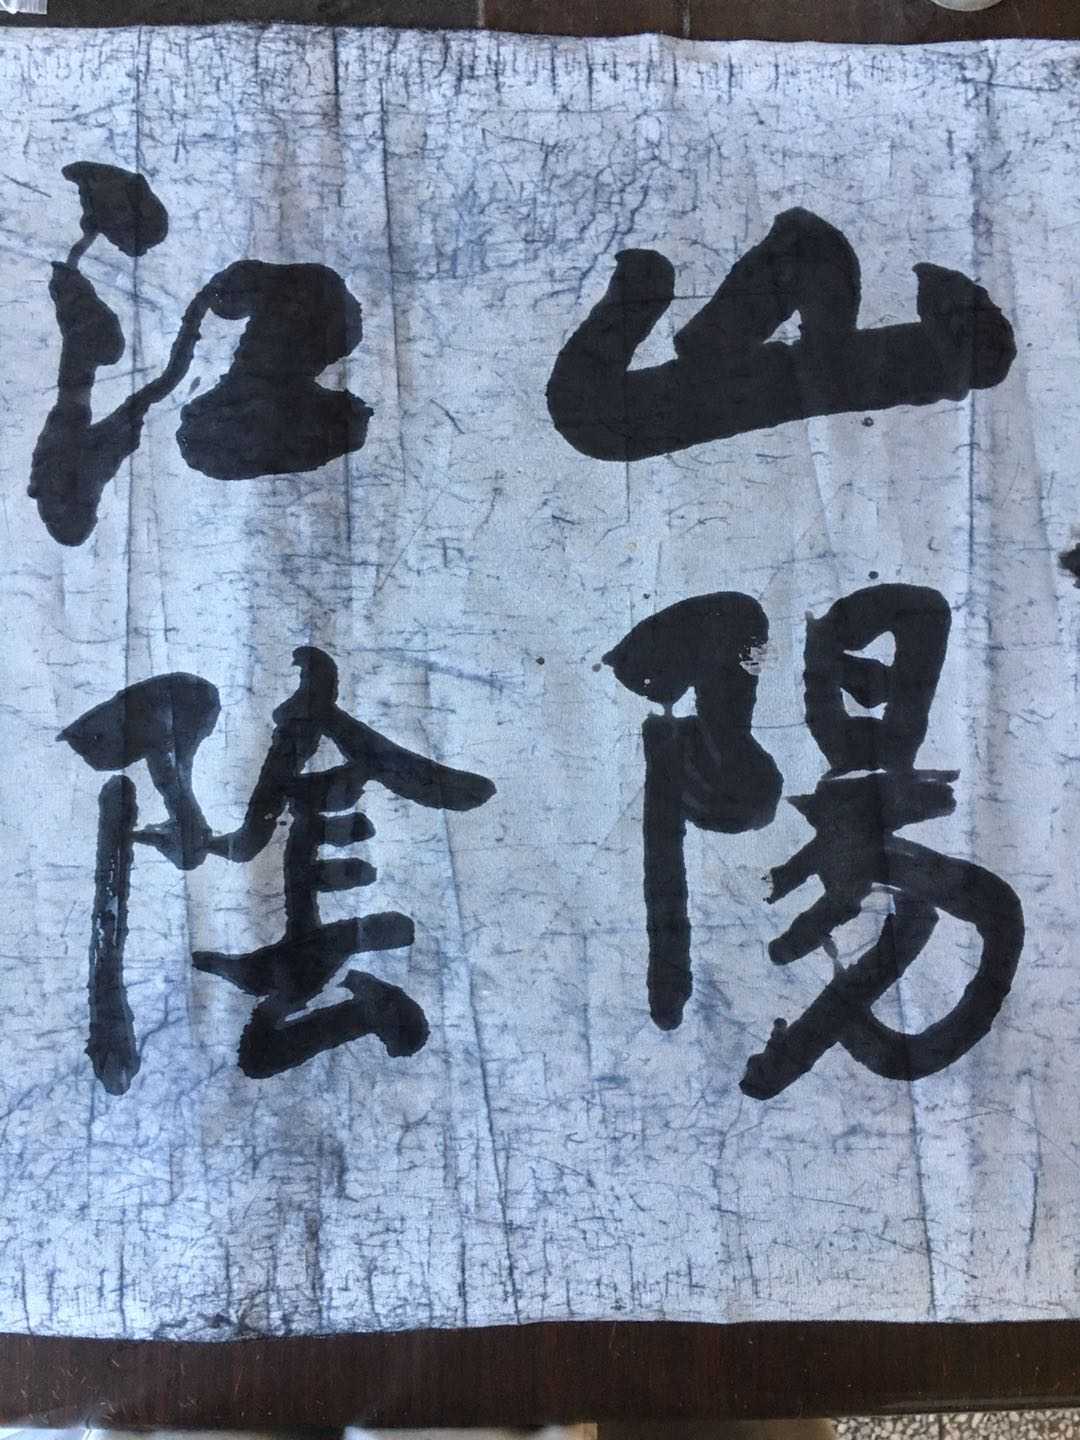 山陽
江陰